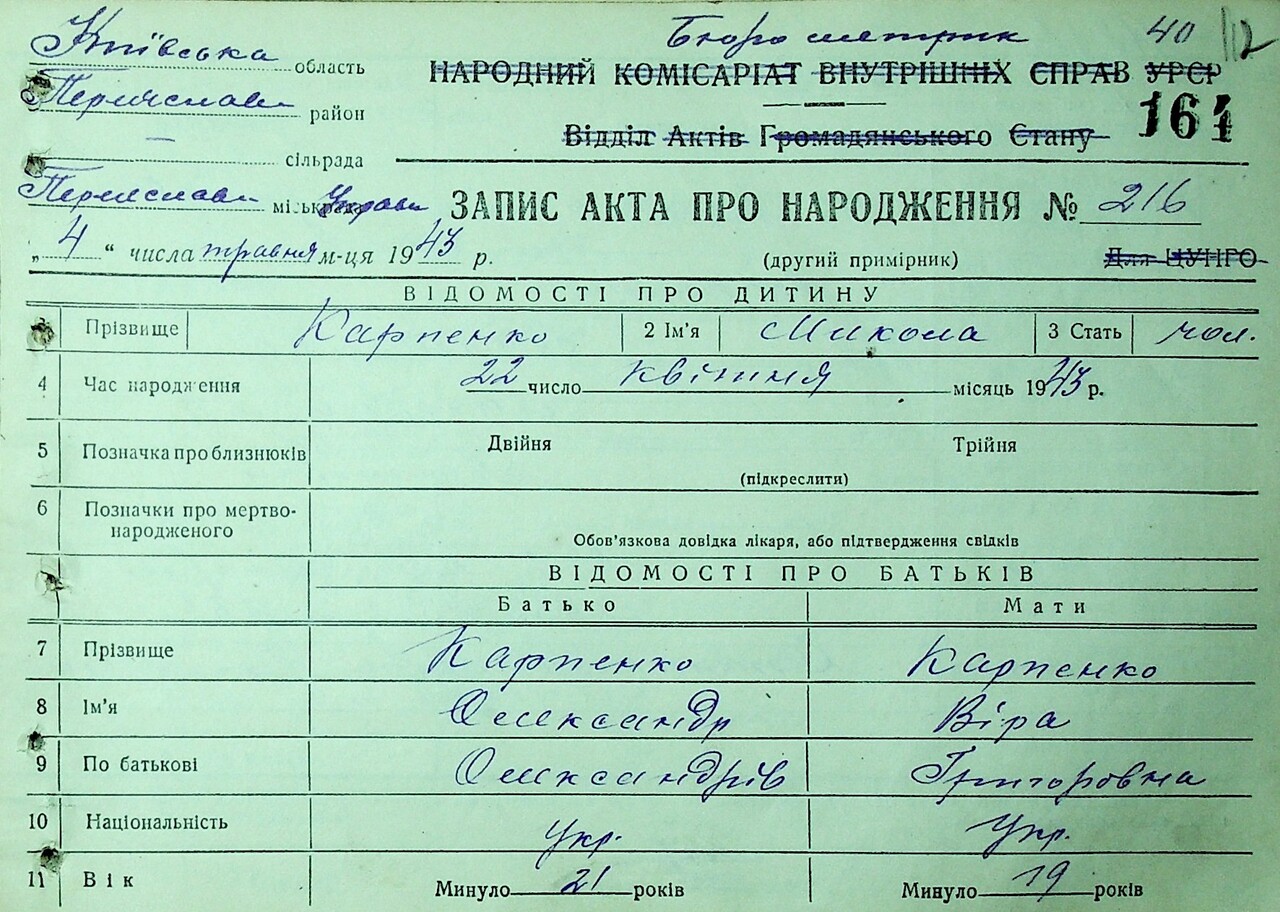 Київська область
Бюро метрик 40 112
НАРОДНИЙ КОМІСАРІАТ ВНУТРІШНІХ СПРАВ УРСР
Переяслав район
164
Відділ Актів Громадянського Стану
— сільрада
Переяслав міськрада Управи
ЗАПИС АКТА ПРО НАРОДЖЕННЯ № 216
„ 4 “ числа травня м-ця 1943 р.
(другий примірник) Для ЦУНГО
ВІДОМОСТІ ПРО ДИТИНУ
Прізвище Карпенко 2 Ім'я Микола 3 Стать чол.
4 Час народження 22 число квітня місяць 1943 р.
5 Позначка про близнюків Двійня Трійня
(підкреслити)
6 Позначки про мертво-
народженого
Обов'язкова довідка лікаря, або підтвердження свідків
ВІДОМОСТІ ПРО БАТЬКІВ
Батько Мати
7 Прізвище Карпенко Карпенко
8 Ім'я Олександр Віра
9 По батькові Олександрів Григоровна
10 Національність Укр. Укр.
11 Вік Минуло 21 років Минуло 19 років